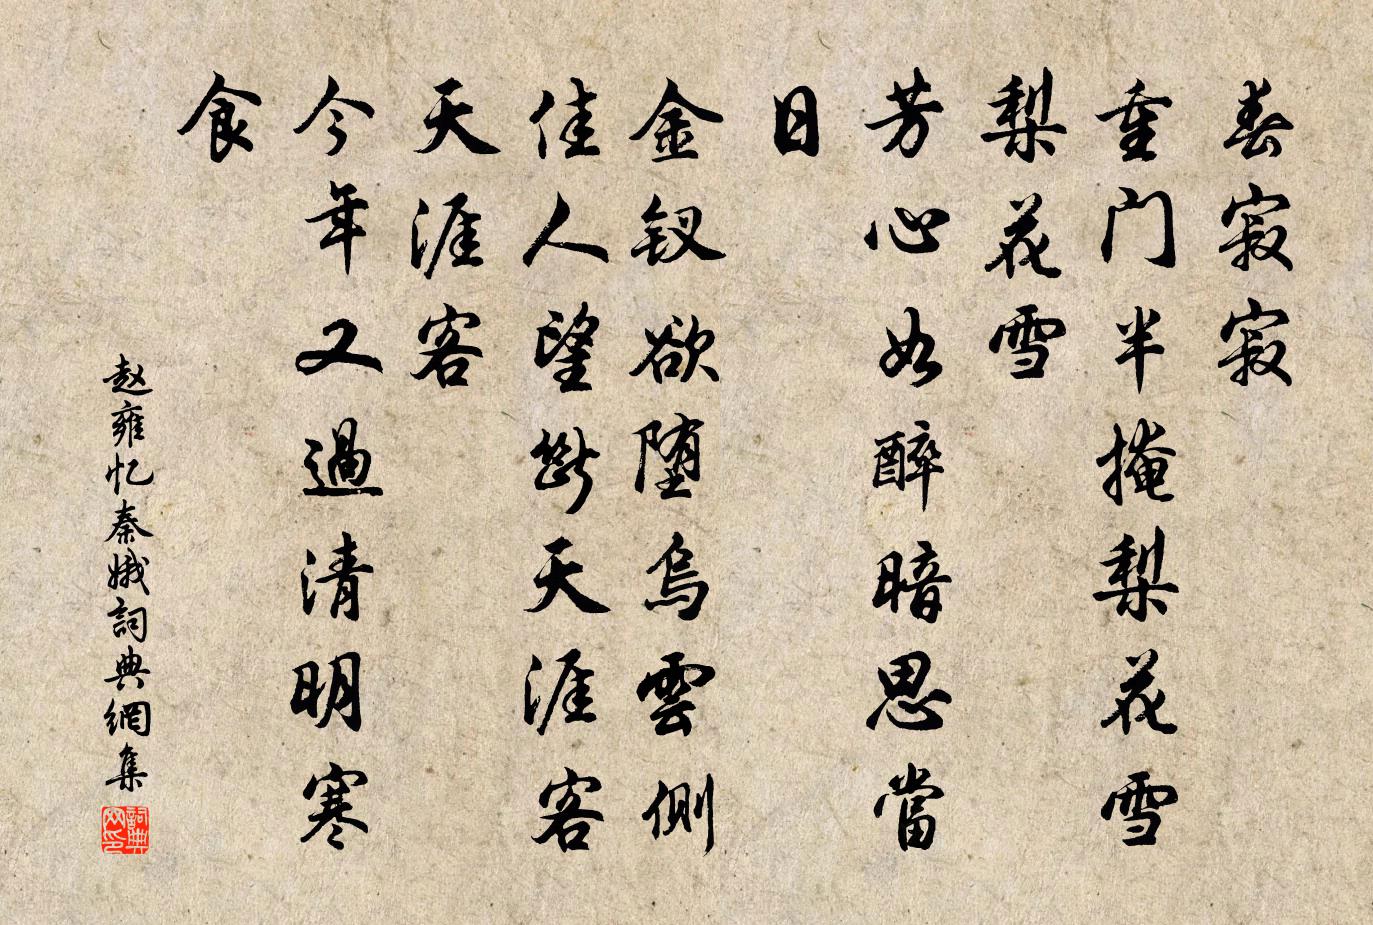 春寂寂
重门半掩梨花雪
梨花雪
芳心如醉暗思當
日
金钗欲堕烏雲側
佳人望斷天涯客
天涯客
今年又過清明寒
食
赵雍忆秦娥詞典網集
詞典
网印